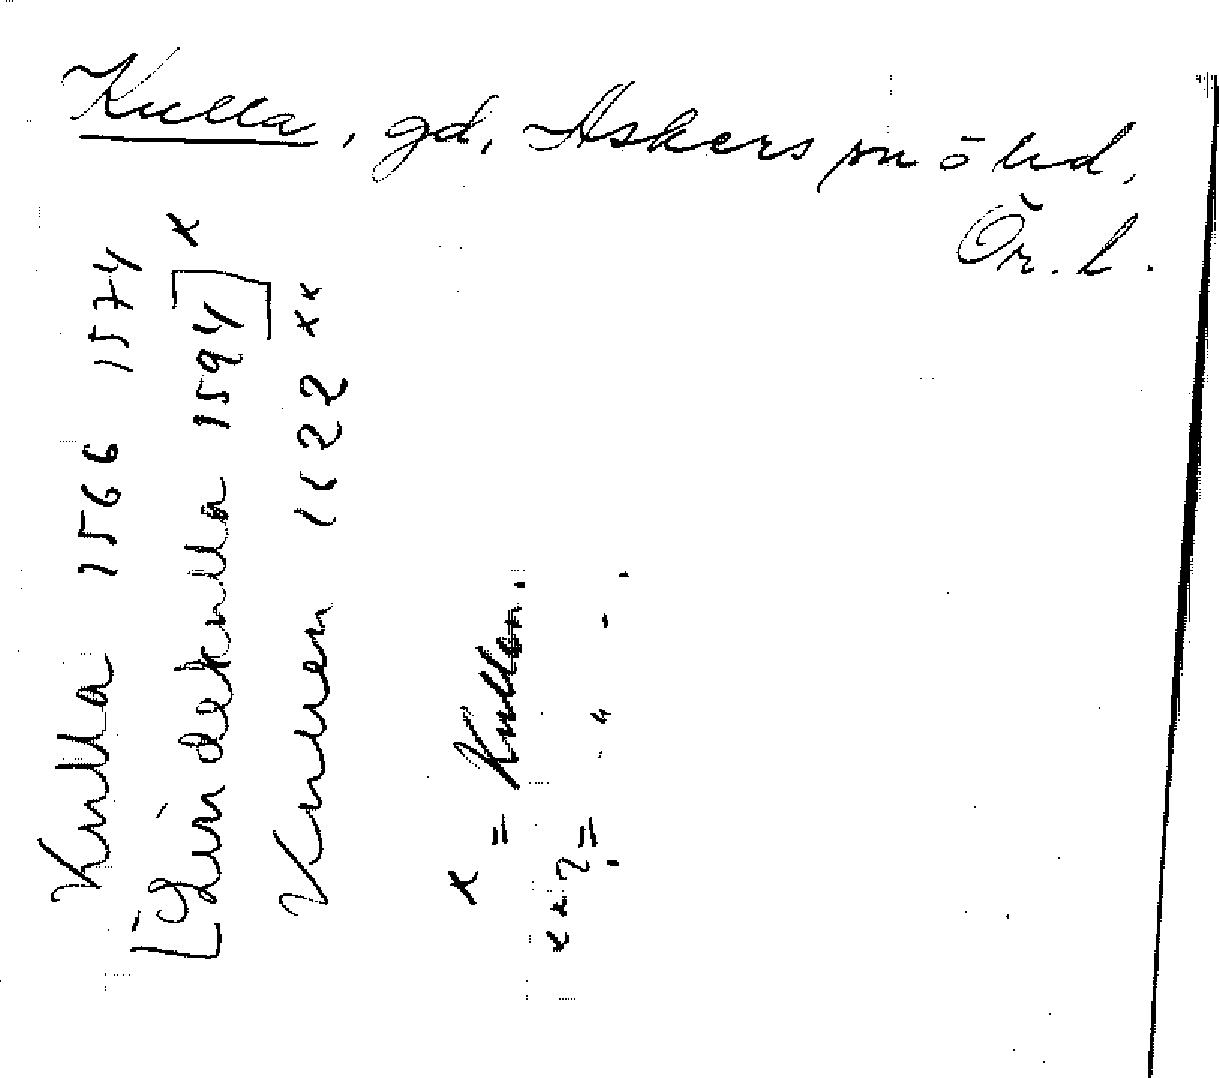 Kulla, gd, Askers sn o hd,
Ör. l.
Kulla 1566 1574
[Lindekulla 1594] x
Kullen 1622 xx
x = Kullen.
xx ? = " -